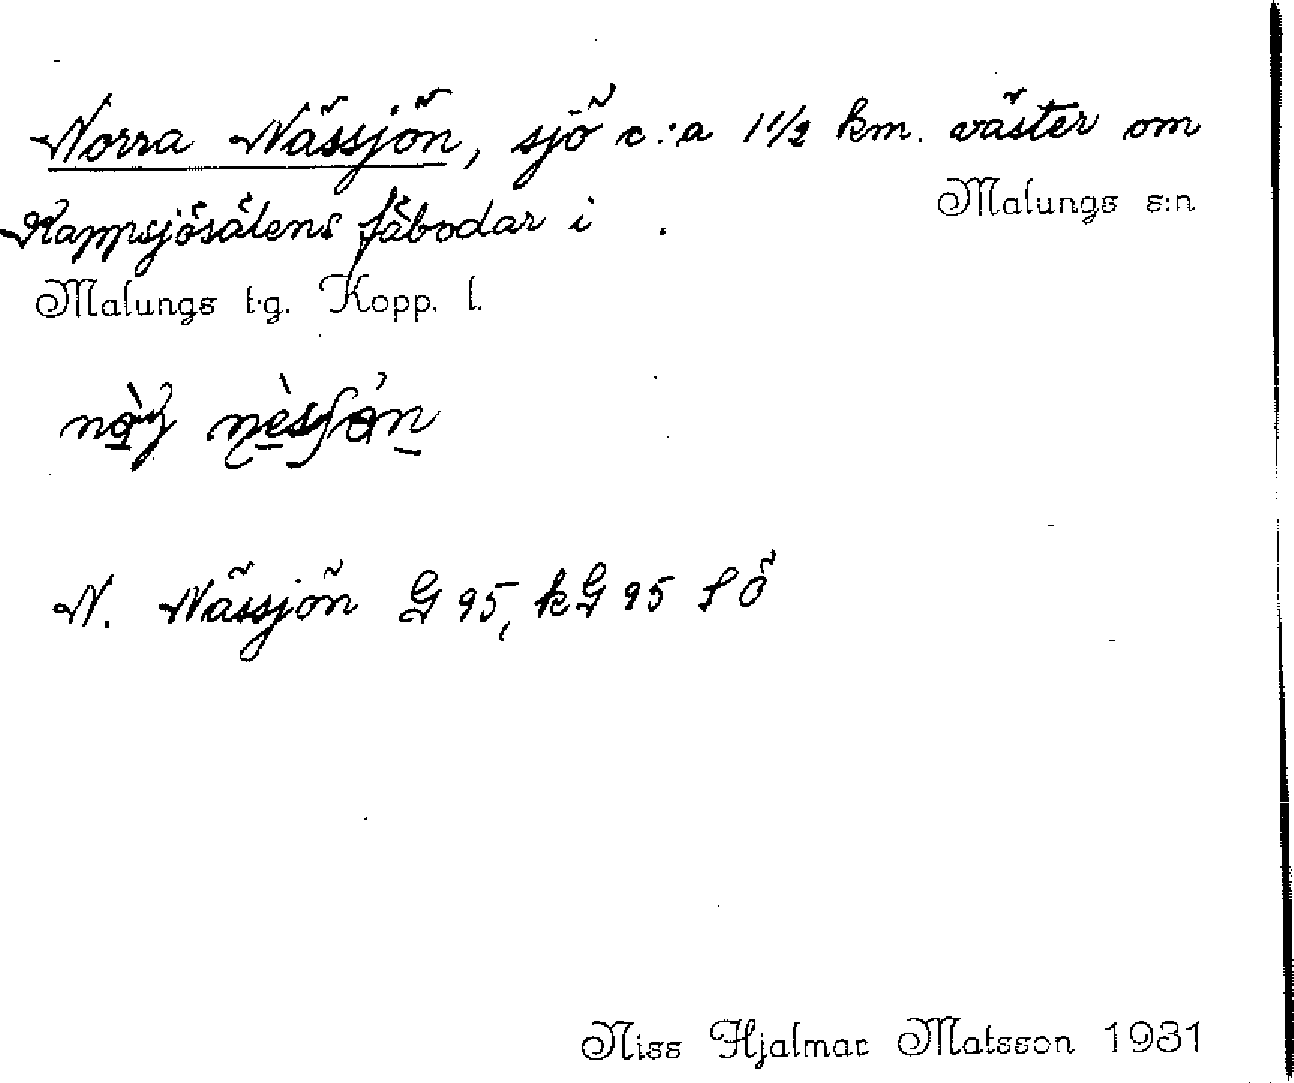 Norra Nässjön, sjö c:a 1 1/2 km. väster om
Kappsjösälens fäbodar i . Malungs s:n
Malungs t.g. Kopp. l.
N. Nässjön G 95, kG 95 S Ö
Niss Hjalmar Matsson 1931